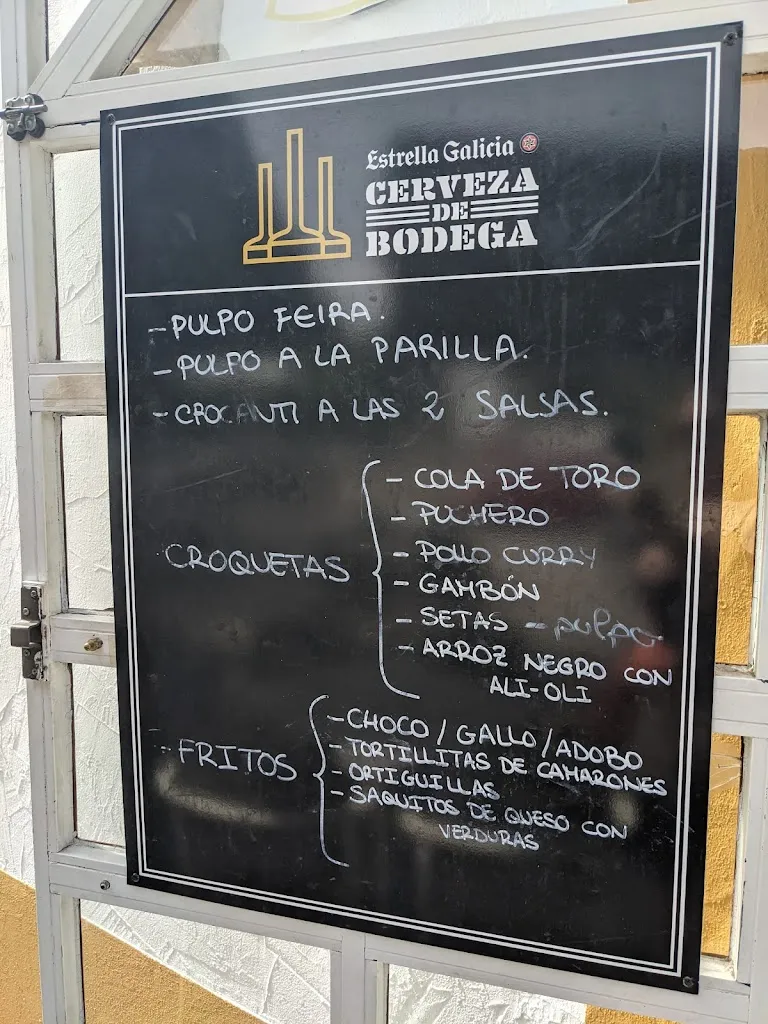 Estrella Galicia
CERVEZA
DE
BODEGA
- PULPO FEIRA.
- PULPO A LA PARILLA.
- CROCANTI A LAS 2 SALSAS.
CROQUETAS
- COLA DE TORO
- PUCHERO
- POLLO CURRY
- GAMBÓN
- SETAS - pulpo
- ARROZ NEGRO CON
ALI-OLI
- FRITOS
- CHOCO / GALLO / ADOBO
- TORTILLITAS DE CAMARONES
- ORTIGUILLAS
- SAQUITOS DE QUESO CON
VERDURAS